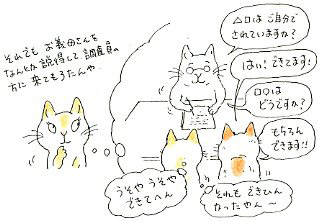 それでも お義母さんを
なんとか説得して、調査員の
方に来てもろたんや
△□は ご自分で
されていますか?
はい! できてます!
□○は
どうですか?
もちろん
できます!!
うそや うそや
できてへん
それも できひん
なったやん〜